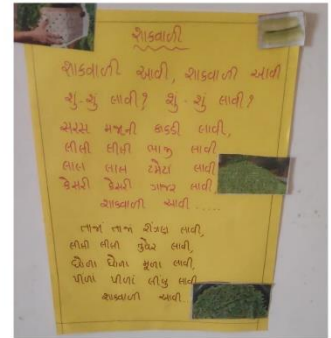 શાકવાળી
શાકવાળી આવી, શાકવાળી આવી
શું-શું લાવી? શું-શું લાવી?
સરસ મજાની કાકડી લાવી,
લીલી લીલી ભાજી લાવી
લાલ લાલ ટમેટાં લાવી
કેસરી કેસરી ગાજર લાવી
શાકવાળી આવી .....
તાજાં તાજાં રીંગણ લાવી,
લીલી લીલી તુવેર લાવી,
ધોળા ધોળા મૂળા લાવી,
પીળા પીળાં લીંબુ લાવી
શાકવાળી આવી